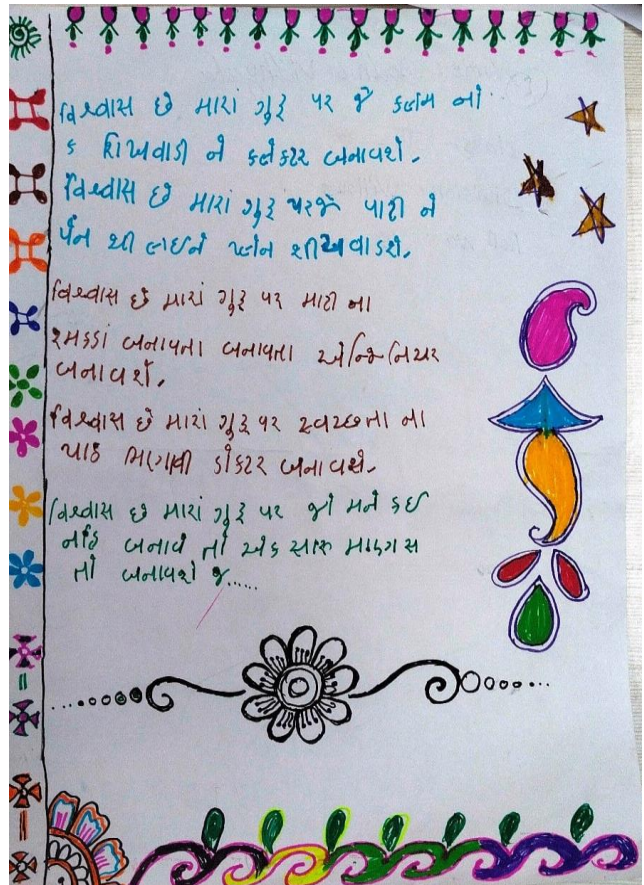 વિશ્વાસ છે મારાં ગુરૂ પર જે કલમ નાં
ક શિખવાડી ને કલેક્ટર બનાવશે.
વિશ્વાસ છે મારાં ગુરૂ પરજે પાટી ને
પેન થી લાઈન પ્લેન શીખવાડશે.
વિશ્વાસ છે મારાં ગુરૂ પર માટી ના
રમકડાં બનાવતા બનાવતા એન્જિનિયર
બનાવશે.
વિશ્વાસ છે મારાં ગુરૂ પર સ્વચ્છતા ના
પાઠ ભણાવી ડૉક્ટર બનાવશે.
વિશ્વાસ છે મારાં ગુરૂ પર જો મને કઈ
નહિ બનાવે તો એક સારુ માણસ
તો બનાવશે જ......